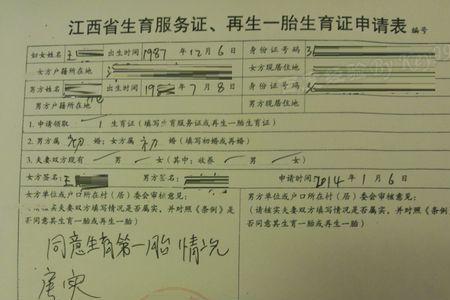 江西省生育服务证、再生一胎生育证申请表 编号
妇女姓名 王 出生时间 1987 年 12 月 6 日 身份证号码 3
女方户籍所在地 女方现居住地
男方姓名 出生时间 19 年 7 月 8 日 身份证号码
男方户籍所在地 男方现居住地
1.申请领取 1 生育证(填写生育服务证或再生一胎生育证)
2.男方属 初 婚;女方属 初 婚(填写初婚或再婚)
3.夫妻双方现有 男 女(其中:收养 男 女)
女方签名: 王 男方签名: 申请时间: 2014 年 1 月 6 日
女方单位或户口所在村(居)委会审核意见: 男方单位或户口所在村(居)委会审核意见:
(请核实夫妻双方填写情况是否属实,并对照《条例》是 (请核实夫妻双方填写情况是否属实,并对照《条例》是
否同意其生育一胎或再生一胎) 否同意其生育一胎或再生一胎)
同意生育第一胎 情况
属实